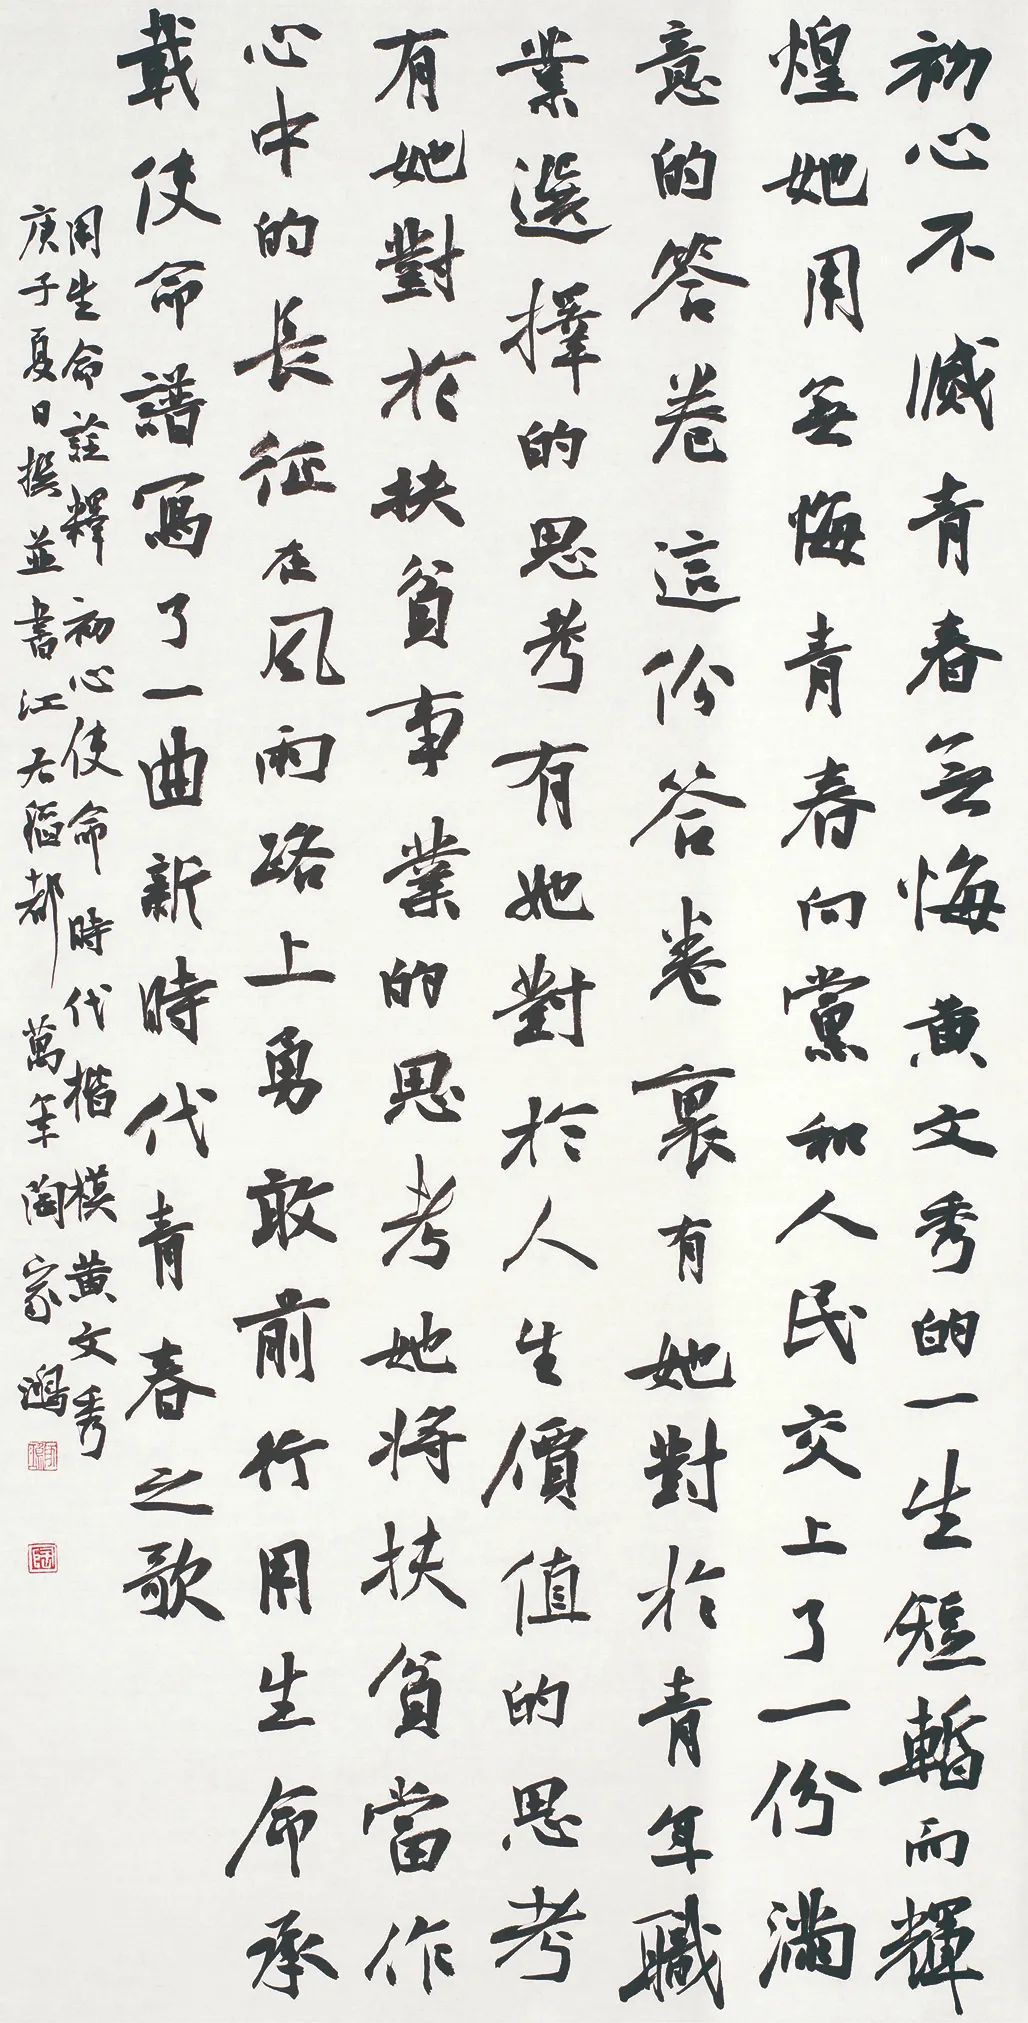 初心不滅青春無悔黄文秀的一生短暫而輝
煌她用無悔青春向黨和人民交上了一份滿
意的答卷這份答卷裏有她對於青年職
業選擇的思考有她對於人生價值的思考
有她對於扶貧事業的思考她將扶貧當作
心中的長征在風雨路上勇敢前行用生命承
載使命譜寫了一曲新時代青春之歌
用生命註釋初心使命時代楷模黄文秀
庚子夏日撰並書江右稻都萬年陶家鴻